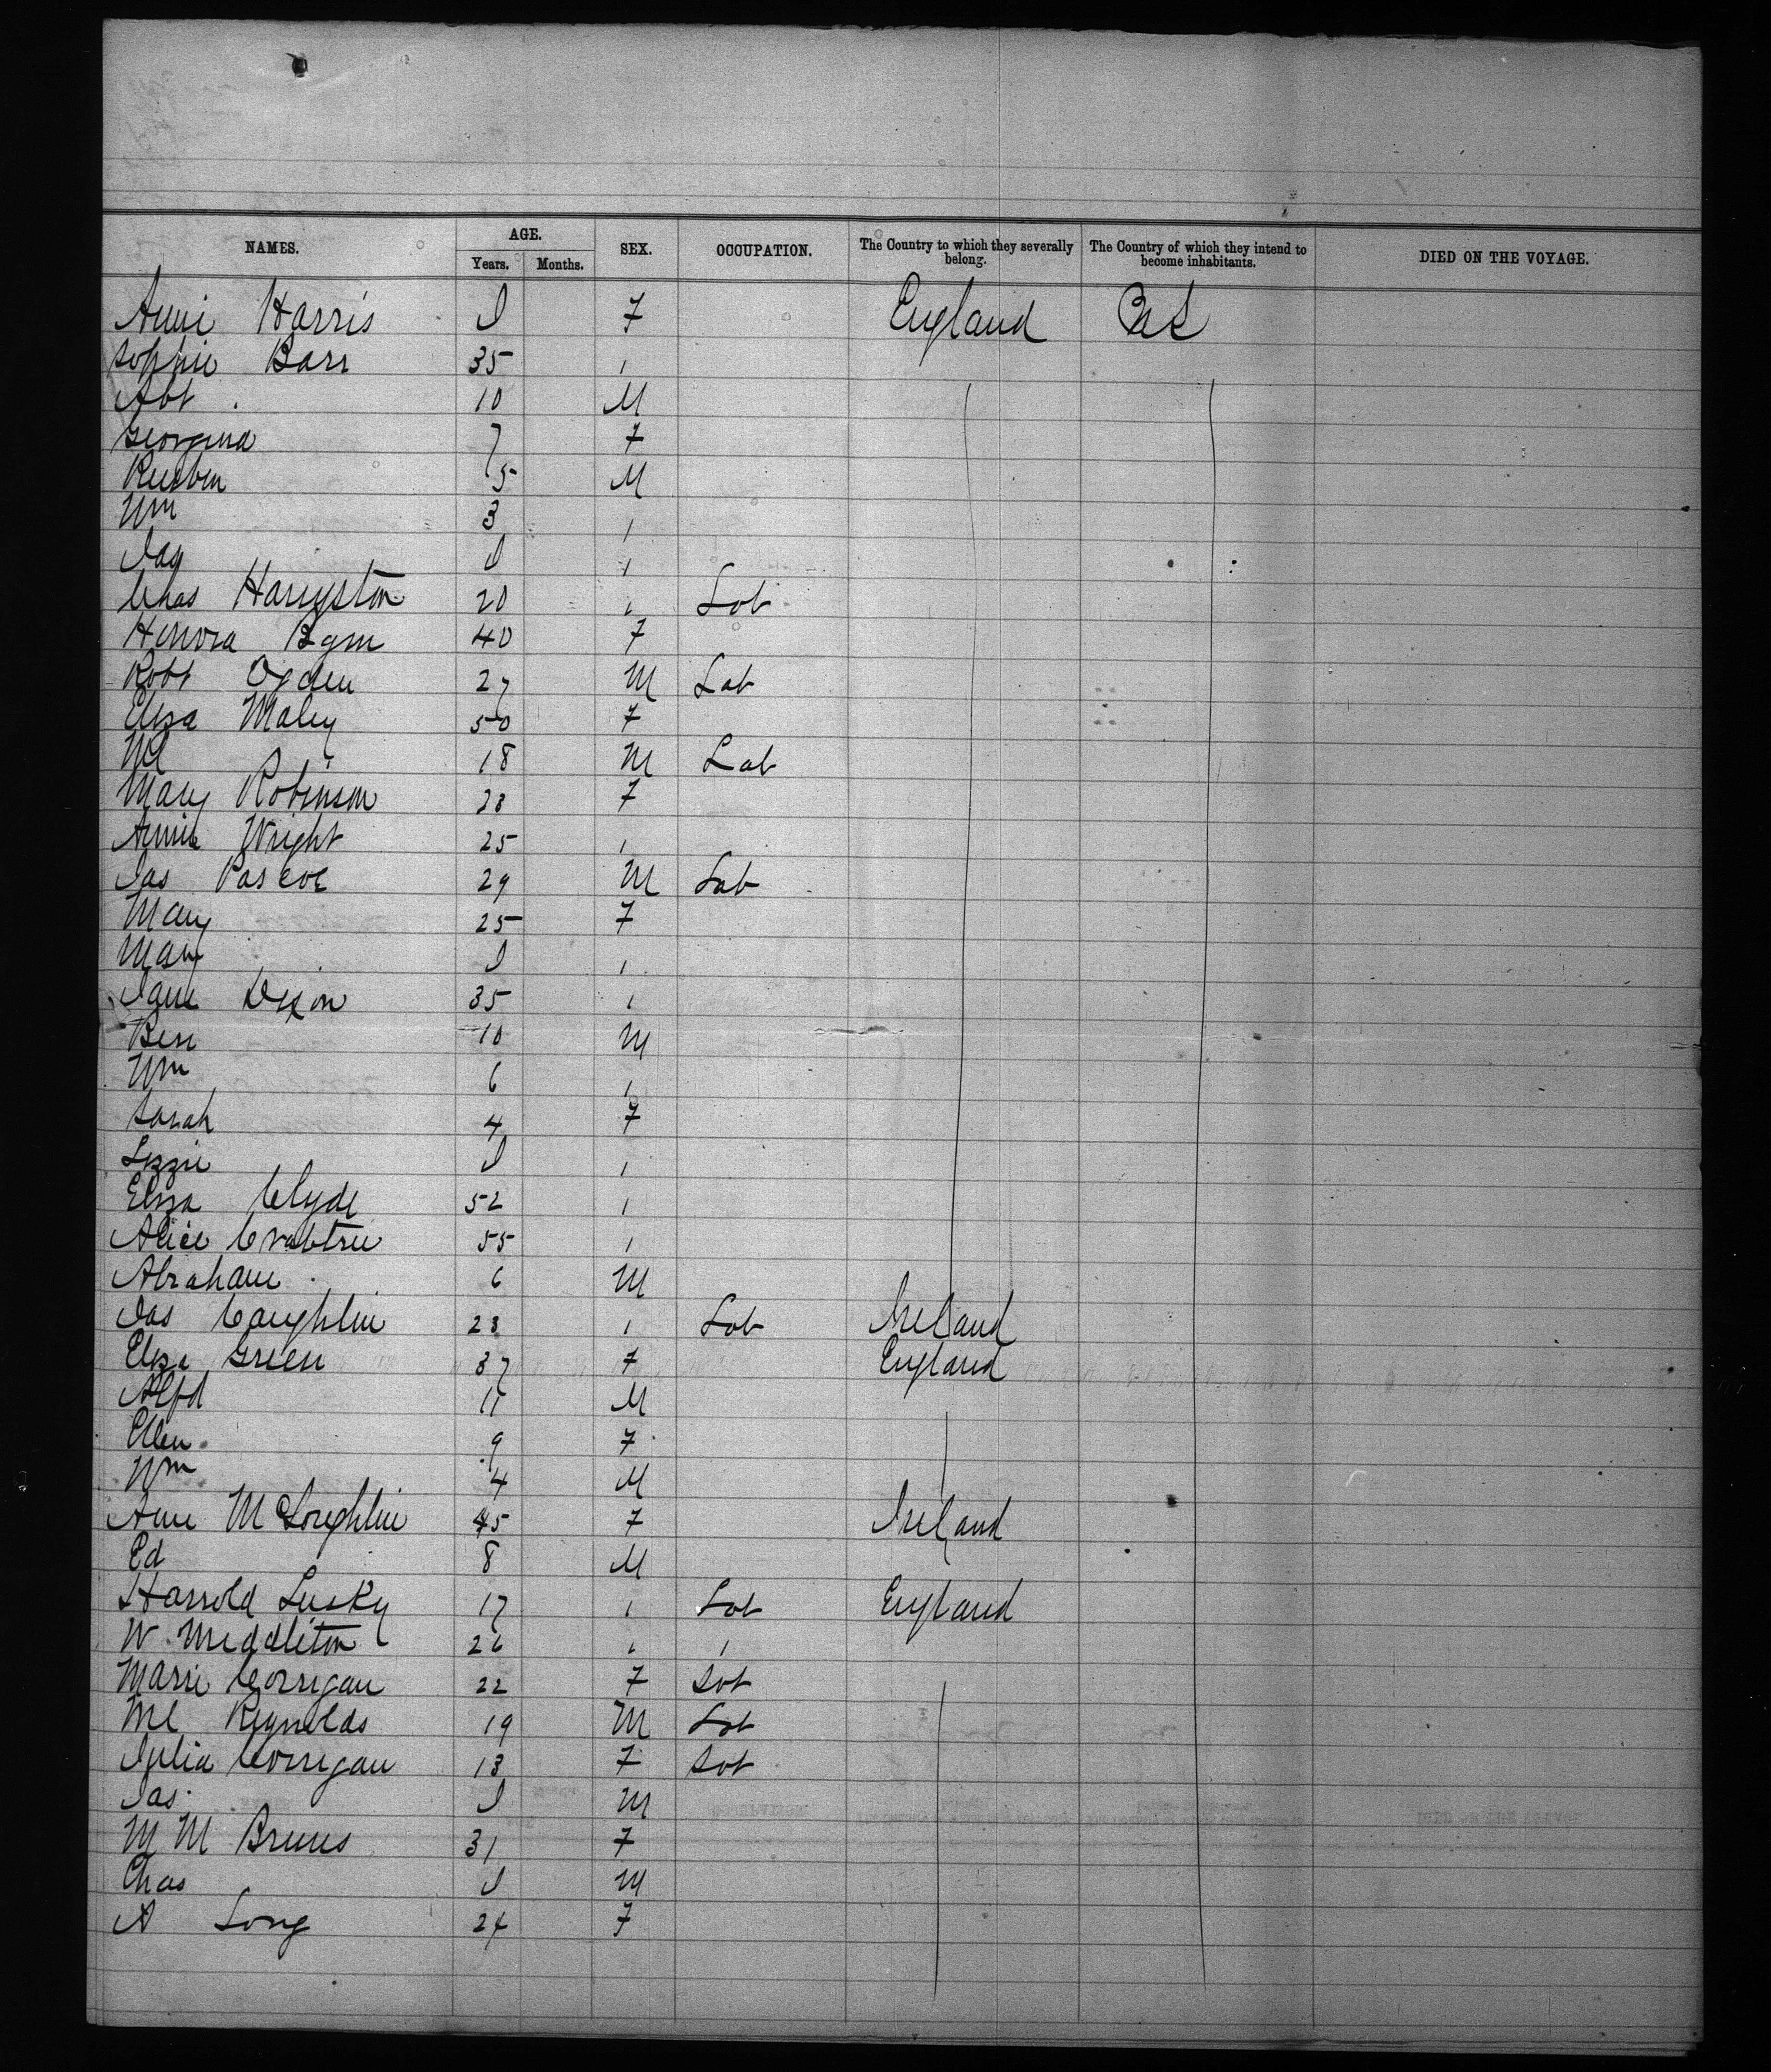 NAMES. AGE. SEX. OCCUPATION. The Country to which they severally belong. The Country of which they intend to become inhabitants. DIED ON THE VOYAGE.
Years. Months.
Anni Harris I F England
Sophie Barr 35 "
Abt 10 M
Georgina 7 F
Reuben 5 M
Wm 3 "
Jas I "
Chas 20 " Lab
Honora 40 F
Robt Ogden 27 M Lab
Eliza Maley 50 F
Ml 18 M Lab
Mary Robinson 28 F
Annie Wright 25 "
Jas Pascoe 29 M Lab
Mary 25 F
Mary I "
Jane Dixon 35 "
Ben 10 M
Wm 6 "
Sarah 4 F
Lizzie I "
Eliza Clyde 52 "
Alice Crabtree 55 "
Abraham 6 M
Jas Coughlin 23 " Lab Ireland
Eliza Green 37 F England
Alfd 11 M
Ellen 9 F
Wm 4 M
Ann McLoughlin 45 F Ireland
Ed 8 M
Harrold Lusky 17 " Lab England
W. Middleton 26 " "
Marie Corrigan 22 F Svt
Ml Reynolds 19 M Lab
Julia Corrigan 18 F Svt
Jas I M
M M Bruns 31 F
Chas I M
A Long 24 F